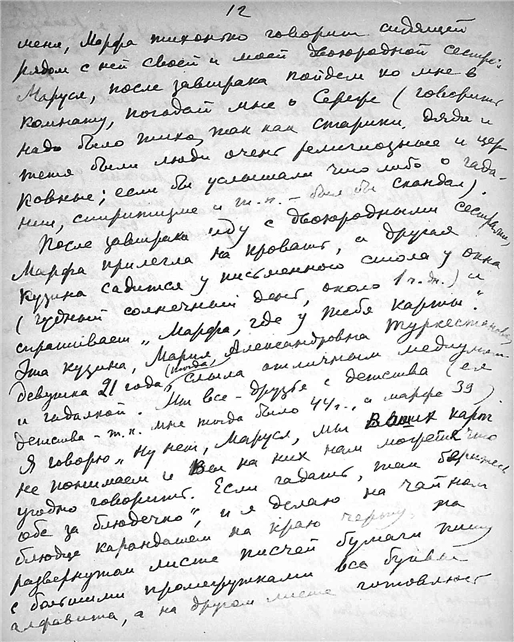 12
меня, Марфа тихонько говорит сидящей
рядом с ней своей и моей двоюродной сестре:
Маруся, после завтрака пойдем ко мне в
комнату, погадай мне о Сереже (говорить
надо было тихо, так как старики дядя и
тетя были люди очень религиозные и цер-
ковные; если бы услышали что либо о гада-
нии, спиритизме и т.п. – был бы скандал).
После завтрака иду с двоюродными сестрами,
Марфа прилегла на кровать, а другая
кузина садится у письменного стола у окна
(чудный солнечный день, около 1 ч. дн.) и
спрашивает „Марфа, где у тебя карты".
Эта кузина, Мария Александровна Туркестанова,
девушка 21 года, (тогда) слыла отличным медиумом
и гадалкой. Мы все – друзья с детства (ея
детства – т.к. мне тогда было 44 г., а Марфе 39).
Я говорю „Ну нет, Маруся, мы Ваших карт
не понимаем и Вы на них нам можете что
угодно говорить. Если гадать, так беритесь
обе за блюдечко", и я делаю на чайном
блюдце карандашом на краю черту, на
развернутом листе писчей бумаги пишу
с большими промежутками все буквы
алфавита, а на другом листе готовлюсь